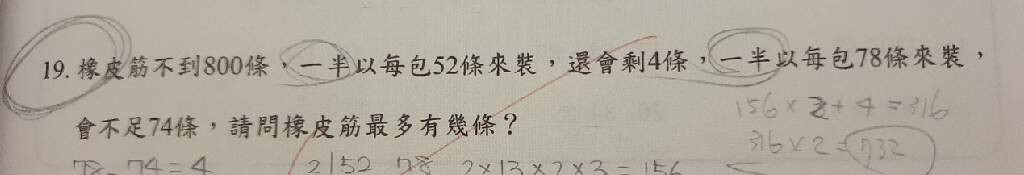 19. 橡皮筋不到800條，一半以每包52條來裝，還會剩4條，一半以每包78條來裝，
會不足74條，請問橡皮筋最多有幾條？
156×2+4=316
316×2=732
78-74=4
2|52 78 2×13×2×3=156